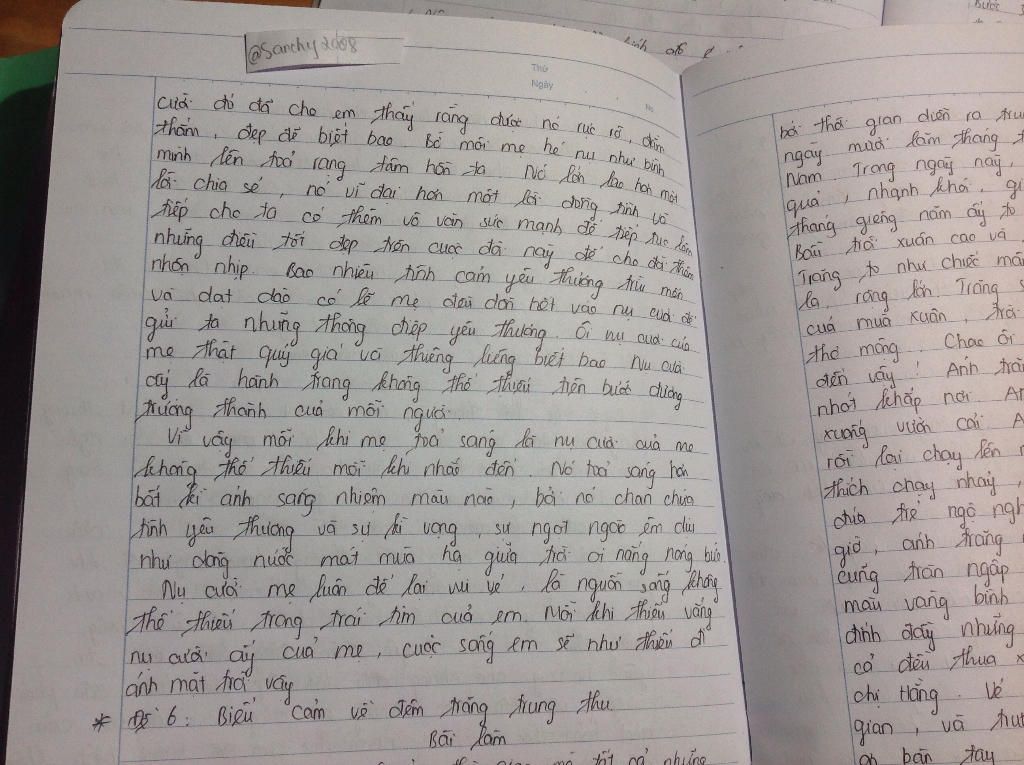 @Sanchy2008
Thứ
Ngày
No
cười đó đã cho em thấy rằng được nó rực rỡ, đằm
thắm, đẹp đẽ biết bao. Bờ môi mẹ hé nụ như bình
minh lên toả rạng tâm hồn ta. Nó lớn lao hơn một
lời chia sẻ, nó vĩ đại hơn một lời đồng tình và
tiếp cho ta có thêm vô vàn sức mạnh để tiếp tục làm
những điều tốt đẹp trên cuộc đời này để cho đời thêm
nhộn nhịp. Bao nhiêu tình cảm yêu thương trìu mến
và dạt dào có lẽ mẹ đã dồn hết vào nụ cười để
gửi ta những thông điệp yêu thương. Ôi nụ cười của
mẹ thật quý giá và thiêng liêng biết bao. Nụ cười
ấy là hành trang không thể thiếu trên bước đường
trưởng thành của mỗi người.
Vì vậy mỗi khi mẹ toả sáng là nụ cười của mẹ
không thể thiếu mỗi khi nhắc đến. Nó toả sáng hơn
bất kì ánh sáng nhiệm màu nào, bởi nó chan chứa
tình yêu thương và sự kì vọng, sự ngọt ngào êm dịu
như dòng nước mát mùa hạ giữa trời oi nắng nóng bức.
Nụ cười mẹ luôn để lại vui vẻ, là nguồn sống không
thể thiếu trong trái tim của em. Mỗi khi thiếu vắng
nụ cười ấy của mẹ, cuộc sống em sẽ như thiếu đi
ánh mặt trời vậy
* Đề 6: Biểu cảm về đêm trăng trung thu.
Bài làm
bởi thời gian diễn ra
ngày mười lăm tháng
Nam. Trong ngày này,
quả, nhạnh khô,
tháng giêng năm ấy to
Bầu trời xuân cao và
Trăng to như chiếc
la, rộng lớn. Trăng
của mùa xuân, trời
thơ mộng. Chao ôi
đến vậy! Ánh
nhót khắp nơi.
xuống vườn cải
rồi lại chạy lên
thích chạy nhảy,
đứa trẻ ngộ
giờ, ánh trăng
cũng tràn ngập
màu vàng bình
đính đầy những
cả đều thua
chị Hằng. Vẻ
gian, và
bàn tay